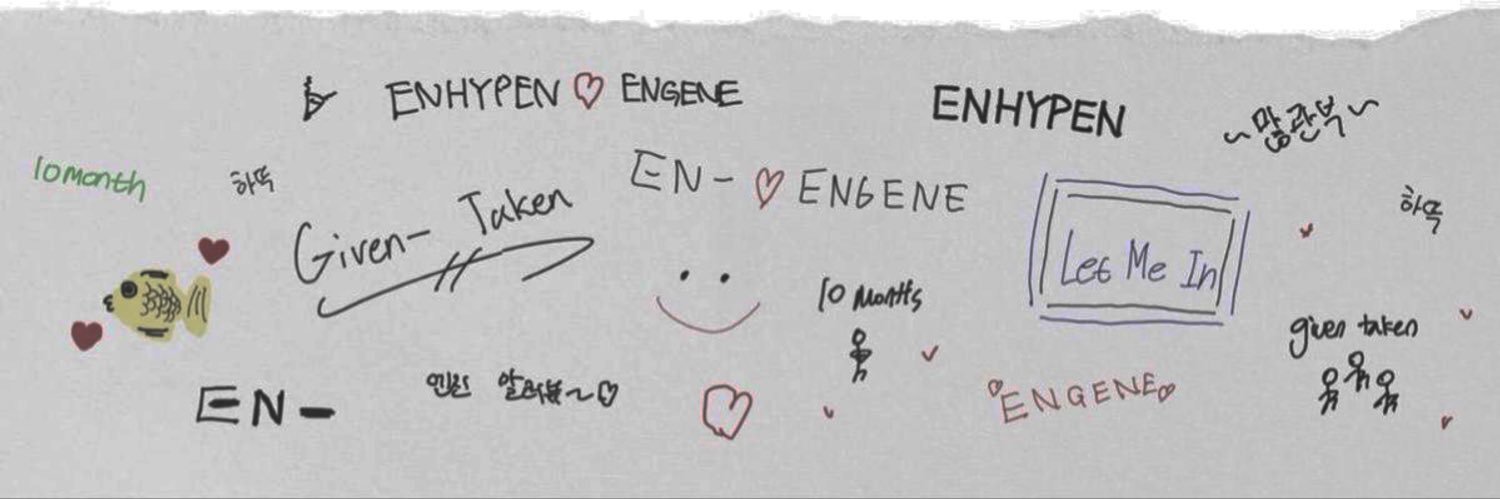 ENHYPEN ♡ ENGENE
ENHYPEN
~많관부~
10month
하뚝
EN- ♡ ENGENE
Given-Taken
하뚝
Let Me In
10 Months
given taken
EN-
알러뷰~♡
ENGENE